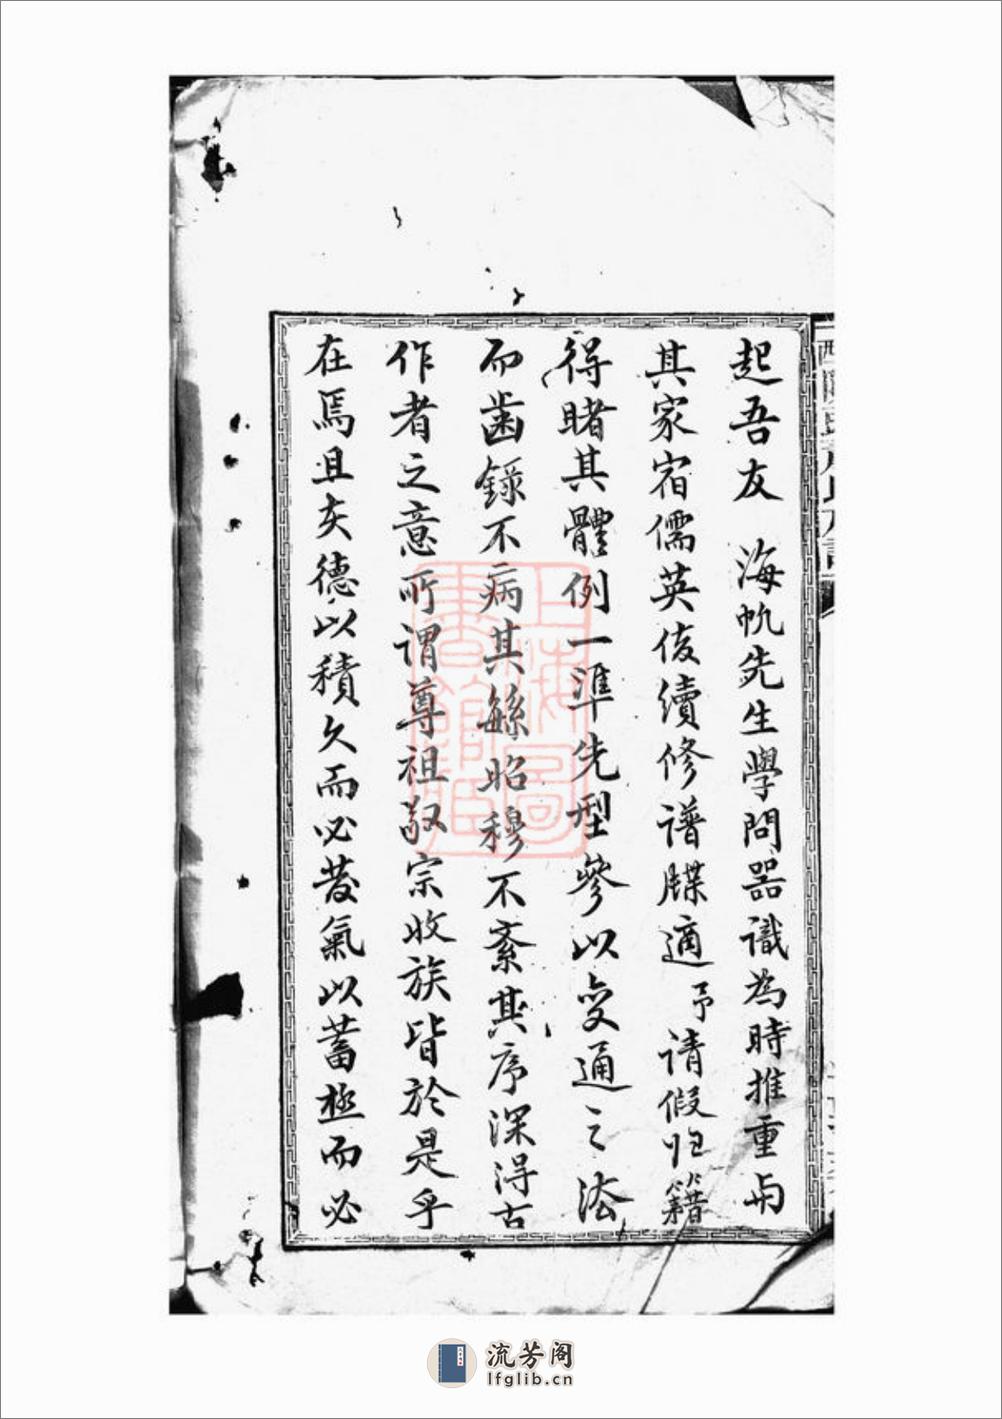 起吾友 海帆先生學問器識為時推重与
其家宿儒英俊續修譜牒適予请假归籍
得睹其體例一準先型參以变通之法
而齒錄不病其繇昭穆不紊其序深得古
作者之意所谓尊祖敬宗收族皆於是乎
在焉且夫德以積久而必發氣以蓄極而必
上海圖書館藏
流芳阁
lfglib.cn